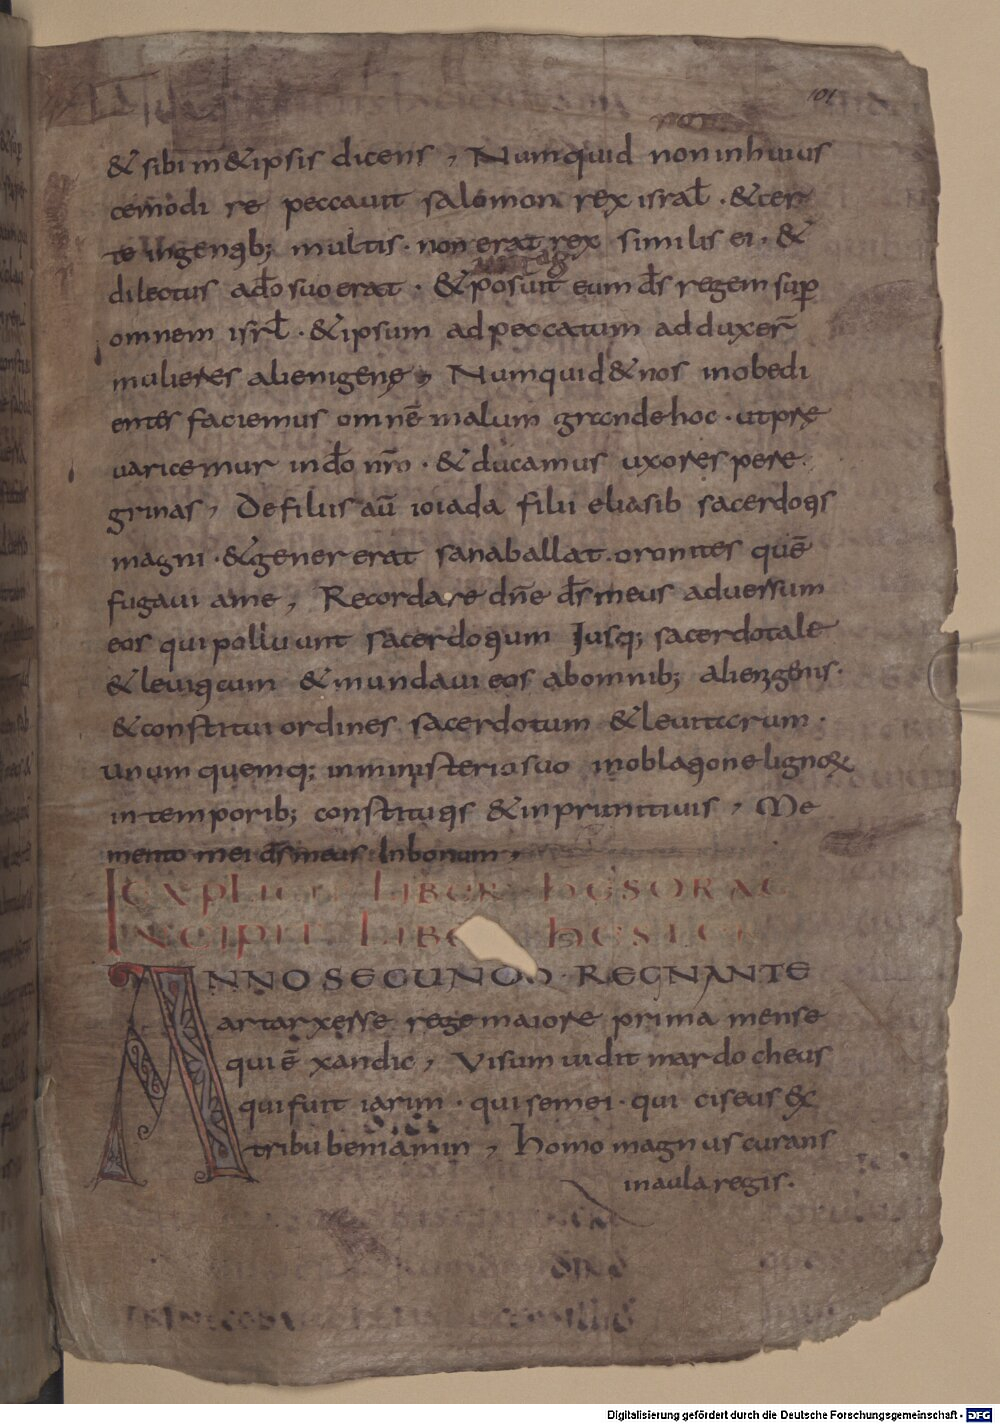 101
& sibi m&ipsis dicens, Numquid non inhuius
cemodi re peccavit salomon rex isral̄ · & cer
te ingentib; multis · non erat rex similis ei · &
dilectus ad̄o suo erat · & posuit eum d̄s regem sup̄
omnem isrl̄ · & ipsum adpeccatum adduxer̄
mulieres alienigenę, Numquid & nos inobedi
entes faciemus omnē malum grande hoc · utpre
varicemur ind̄o nr̄o · & ducamus uxores pere
grinas, Defiliis aū ioiada filii eliasib sacerdotis
magni · & gener erat sanaballat · oronites quē
fugavi a me, Recordare dn̄e d̄s meus adversum
eos qui polluunt sacerdotium Iusq; sacerdotale
& leviticum & mundavi eos abomnib; alienigenis ·
& constitui ordines sacerdotum & levitarum ·
unum quemq; inministerio suo inoblatione lignoꝝ
intemporib; constitutis & inprimitivis, Me
mento mei d̄s meus Inbonum,
EXPLICIT LIBER HESDRAE
INCIPIT LIBE HESTER
ANNO SECUNDO · REGNANTE
artarxesse rege maiore prima mense
qui ē xandic, Visum vidit mardocheus
qui fuit iarim · qui semei · qui ciseus ex
tribu beniamin, homo magnus curans
inaula regis.
Digitalisierung gefördert durch die Deutsche Forschungsgemeinschaft - DFG